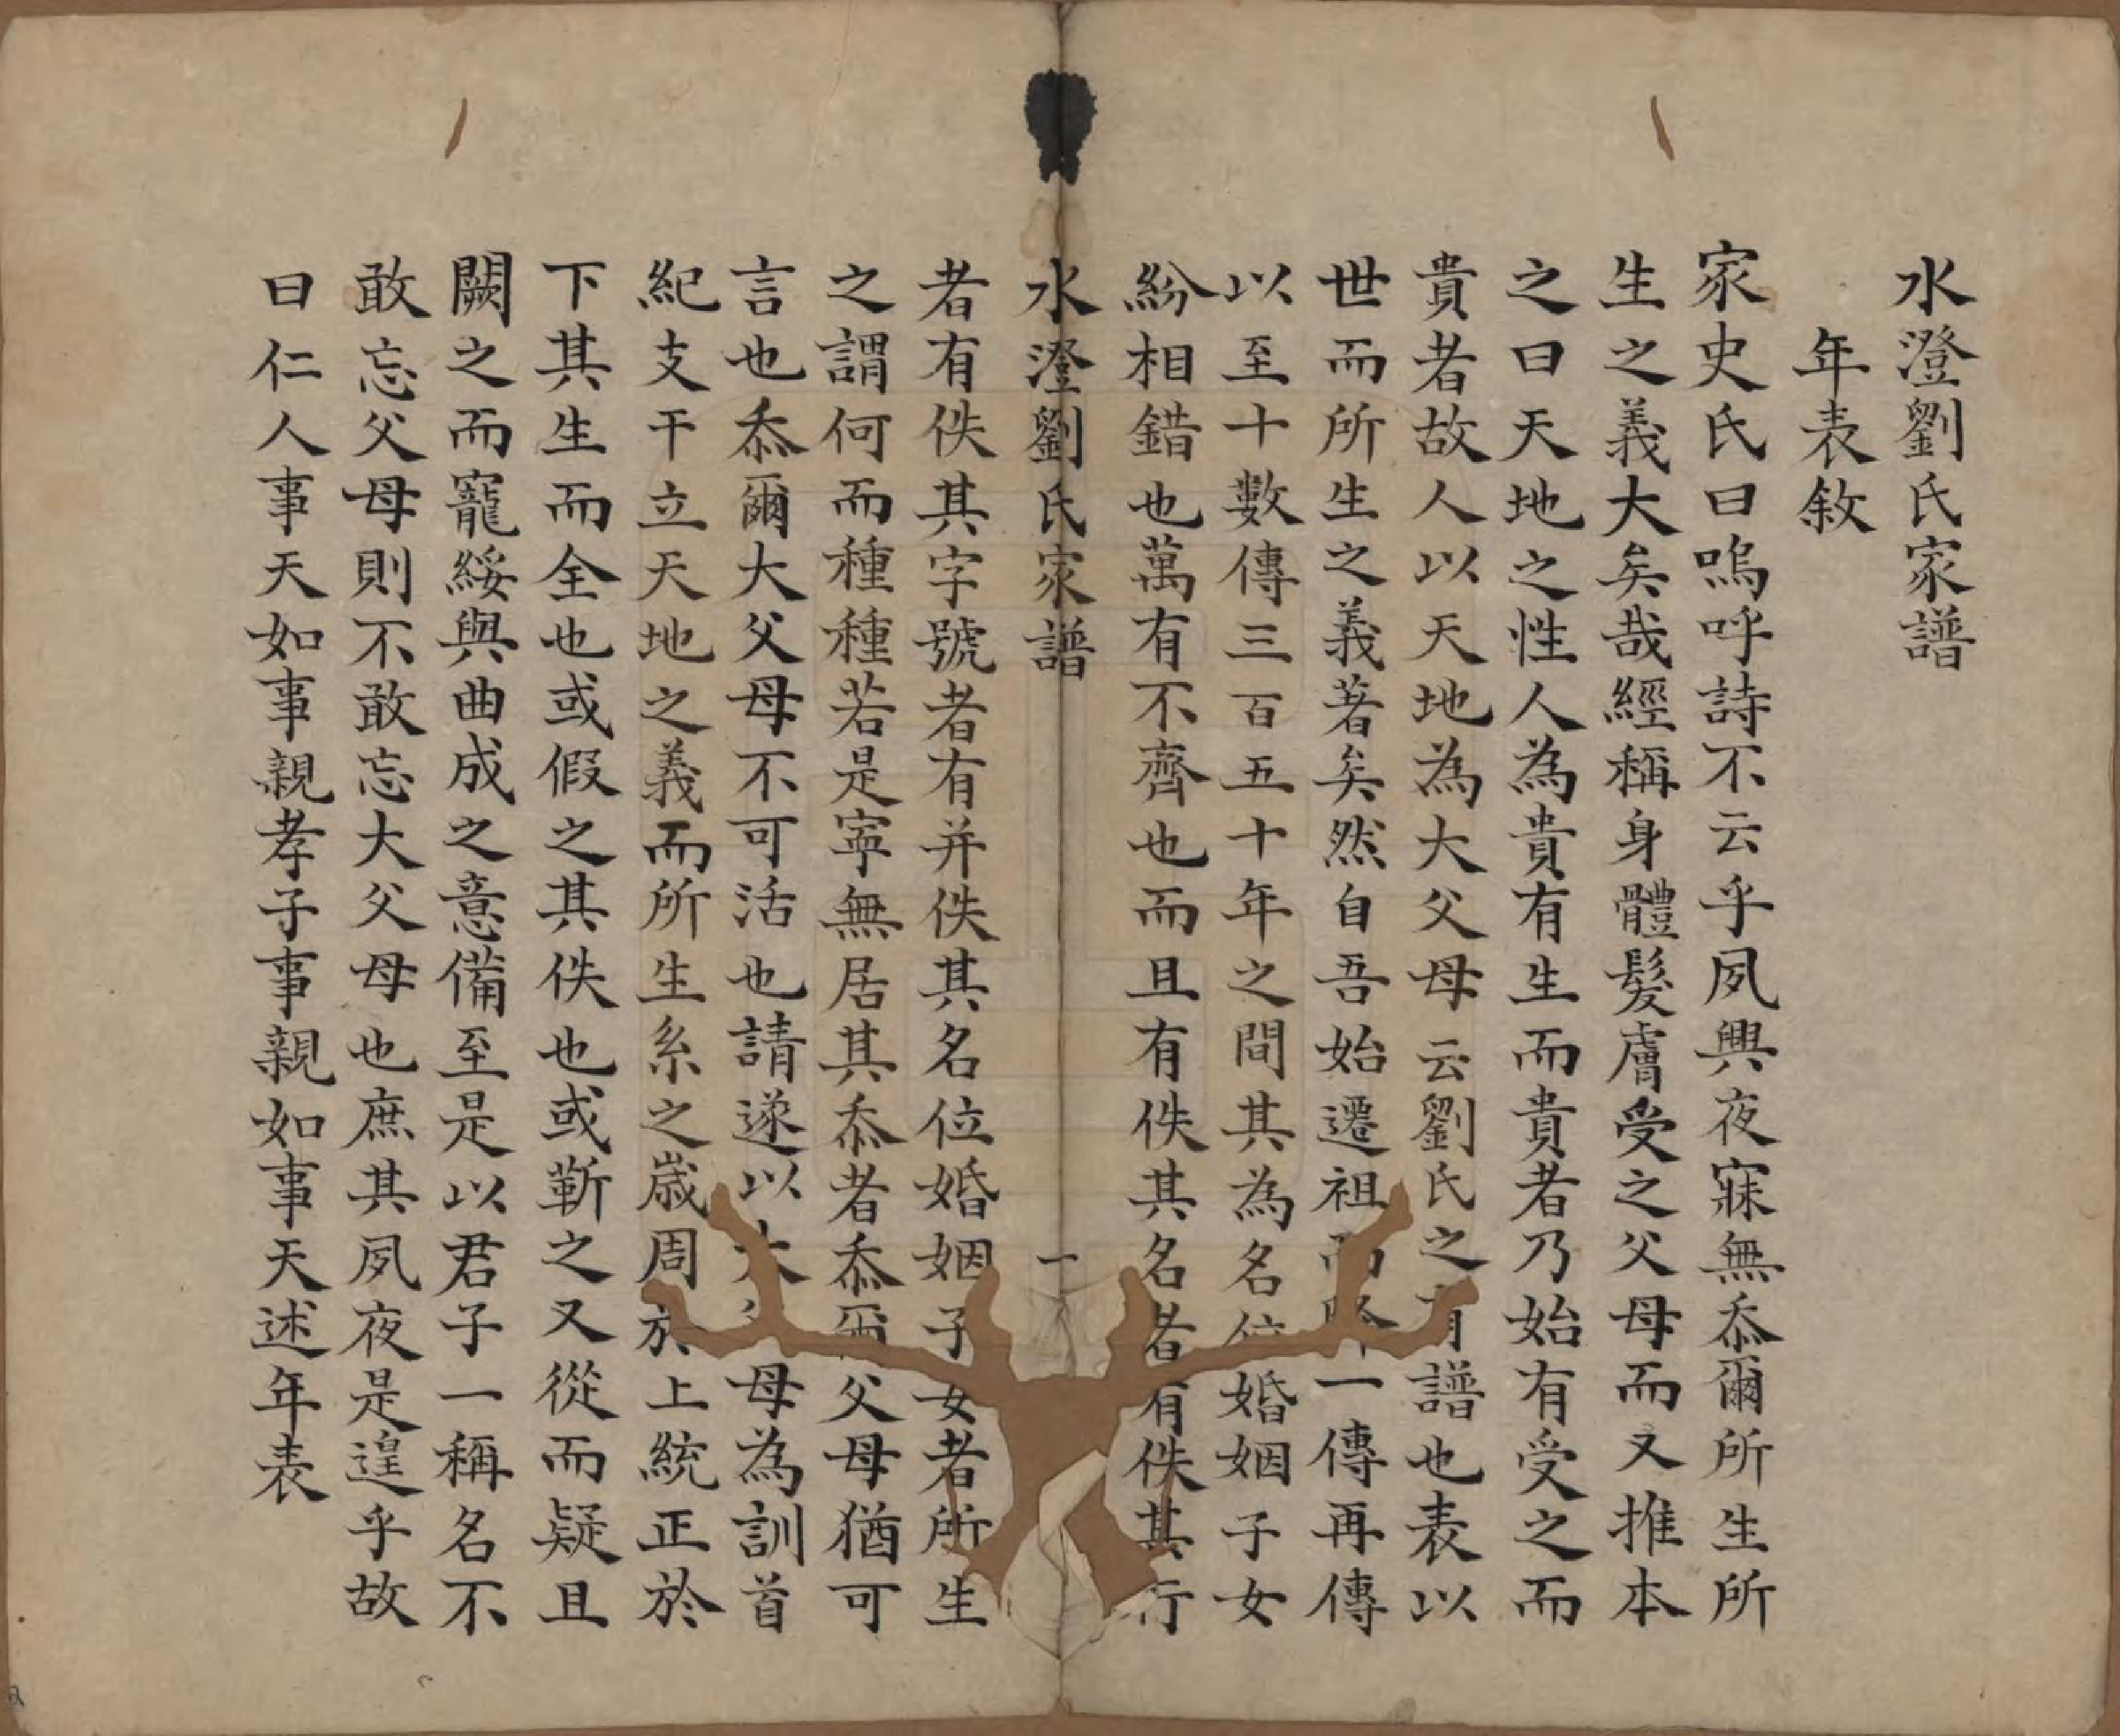 水澄劉氏家譜
年表敘
家史氏曰嗚呼詩不云乎夙興夜寐無忝爾所生所
生之義大矣哉經稱身體髮膚受之父母而又推本
之曰天地之性人為貴有生而貴者乃始有受之而
貴者故人以天地為大父母云劉氏之有譜也表以
世而所生之義著矣然自吾始遷祖而降一傳再傳
以至十數傳三百五十年之間其為名位婚姻子女
紛相錯也萬有不齊也而且有佚其名者有佚其行
水澄劉氏家譜 一
者有佚其字號者有并佚其名位婚姻子女者所生
之謂何而種種若是寧無居其忝者忝爾父母猶可
言也忝爾大父母不可活也請遂以大父母為訓首
紀支干立天地之義而所生系之歲周於上統正於
下其生而全也或假之其佚也或蘄之又從而疑且
闕之而寵綏與曲成之意備至是以君子一稱名不
敢忘父母則不敢忘大父母也庶其夙夜是遑乎故
曰仁人事天如事親孝子事親如事天述年表